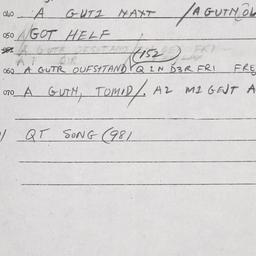 040 A GUTI NAXT / A GUTN OL
050 NGOT HELF
152
060 A GUTR OUFSTAND Q IN D3R FRI FRE
070 A GUTN, TOMID/. A2 M1 GENT A
QT SONG (981